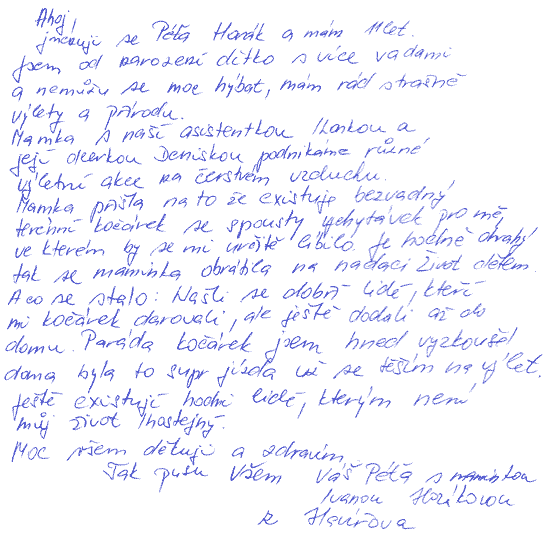 Ahoj,
jmenuji se Péťa Horák a mám 11 let.
Jsem od narození dítko s více vadami
a nemůžu se moc hýbat, mám rád strašně
výlety a přírodu.
Mamka s naší asistentkou Hankou a
její dcerkou Deniskou podnikáme různé
výletní akce na čerstvém vzduchu.
Mamka přišla na to že existuje bezvadný
terénní kočárek se spousty vychytávek pro mě,
ve kterém by se mi určitě líbilo. Je hodně drahý
tak se maminka obrátila na nadaci Život dětem.
A co se stalo: Našli se dobří lidé, kteří
mi kočárek darovali, ale ještě dodali až do
domu. Paráda kočárek jsem hned vyzkoušel
doma byla to supr jízda už se těším na výlet.
Ještě existují hodní lidé, kterým není
můj život lhostejný.
Moc všem děkuji a zdravím
Tak pusu Všem Váš Péťa s maminkou
Ivanou Horákovou
z Havířova